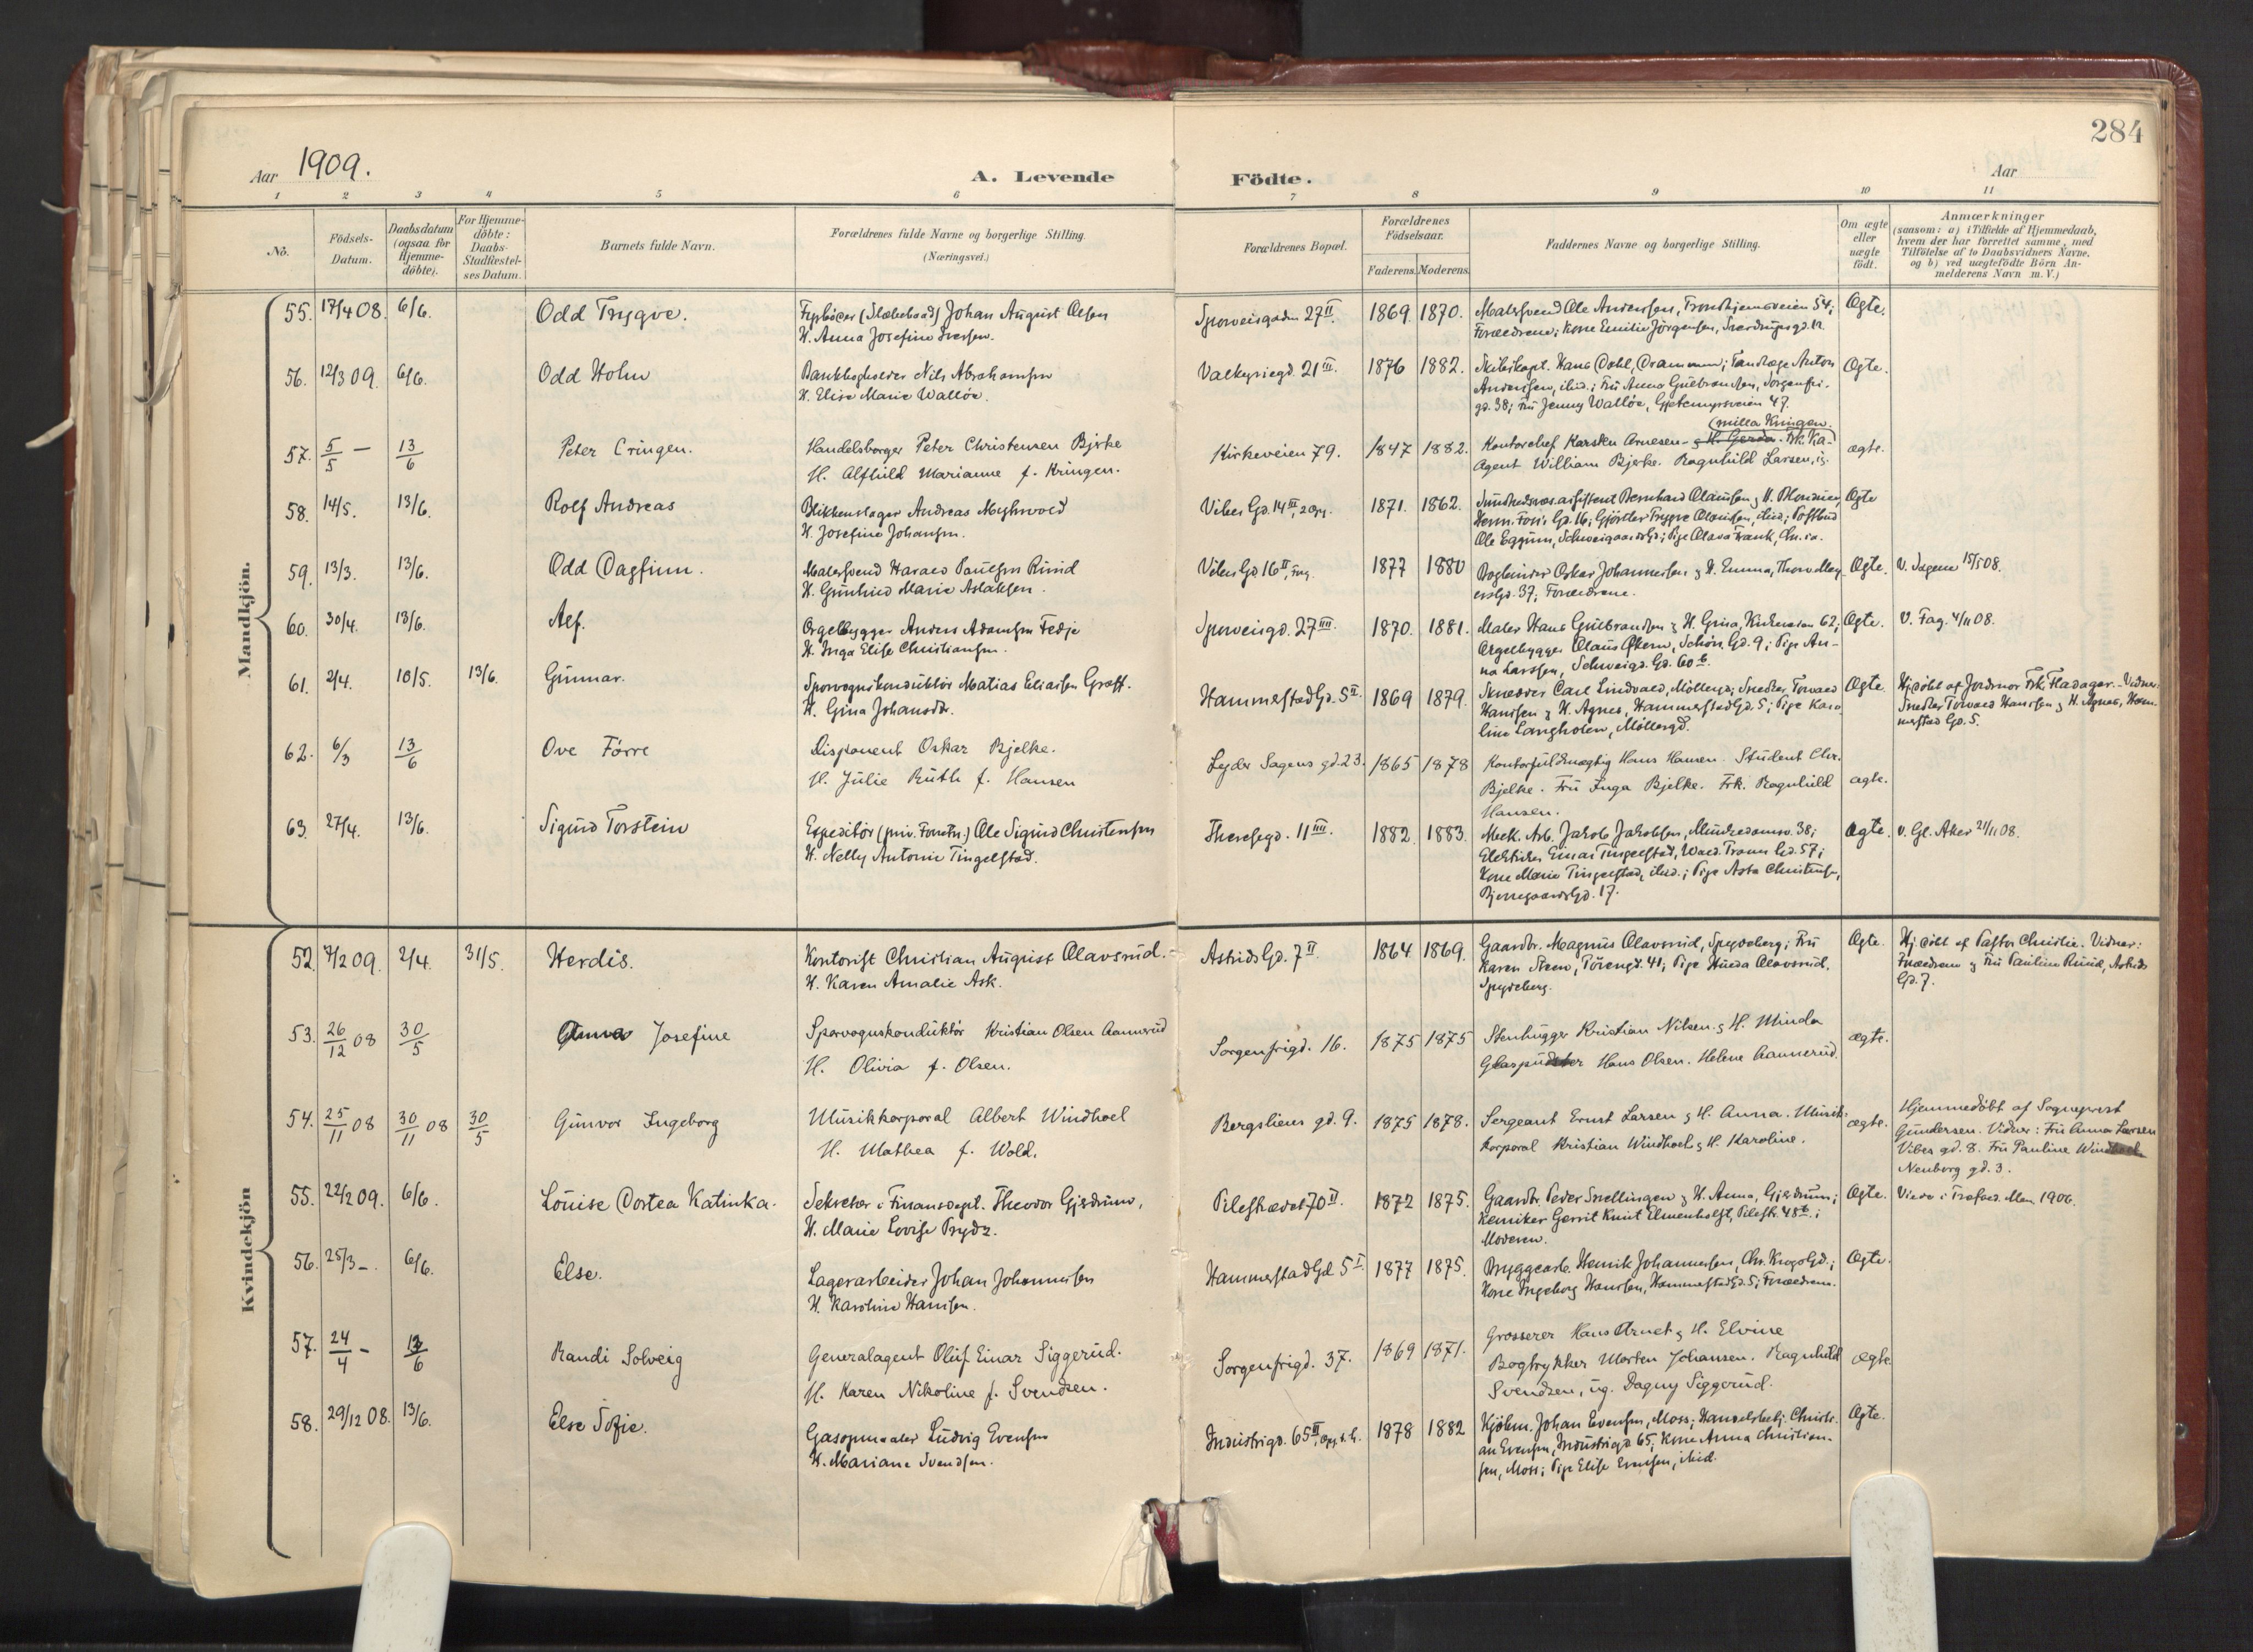 284
Aar 1909.
A. Levende Födte.
Aar
1 2 3 4 5 6 7 8 9 10 11
No.
Födsels-
Datum.
Daabsdatum
(ogsaa for
Hjemme-
döbte).
For Hjemme-
döbte:
Daabs-
Stadfæstel-
ses Datum.
Barnets fulde Navn.
Forældrenes fulde Navne og borgerlige Stilling.
(Næringsvei.)
Forældrenes Bopæl.
Forældrenes
Födselsaar.
Faderens. Moderens.
Faddernes Navne og borgerlige Stilling.
Om ægte
eller
uægte
födt.
Anmærkninger
(saasom: a) i Tilfælde af Hjemmedaab,
hvem der har forrettet samme, med
Tilföielse af to Daabsvidners Navne,
og b) ved uægtefödte Börn An-
melderens Navn m. V.)
Mandkjön.
55. 17/4 08. 6/6. Odd Trygve.
Johan August Olsen
H. Anna Josefine Iversen.
27 II. 1869. 1870.
Malersvend Ole Andersen, Trondhjemsveien 54;
Forældrene; Kone Emilie Jörgensen,
Ægte.
56. 12/3 09. 6/6. Odd Holm
Bankbogholder Nils Abrahamsen
H. Elise Marie Wallöe.
Valkyriegd. 21 III. 1876 1882.
Skibskapt. Hans Dahl, Drammen; Tandlæge Anton
Anderssen, ibid.; Fru Anna Gulbrandsen, Sorgenfri-
gd. 38; Fru Jenny Wallöe, Gjetemyrsveien 47.
Ægte.
57. 5/5 — 13/6 Peter Cringen.
Handelsborger Peter Christensen Bjerke
H. Alfhild Marianne f. Kringen.
Kirkeveien 79. 1847 1882.
(milla Kringen.
Kontorchef Karsten Arnesen - & H. Gerda. Frk. Ka-
Agent William Bjerke. Ragnhild Larsen, ug.
ægte.
58. 14/5. 13/6. Rolf Andreas
Blikkenslager Andreas Myhrvold
H. Josefine Johansen.
Vibes Gd. 14 III, 1871. 1862.
Bernhard Olaussen & H.
Gd. 16; Gjörtler Trygve Olaussen, ibid.; Postbud
Ole Eggum, Schweigaardsgd.; Pige Olava Frank,
Ægte
59. 13/3. 13/6. Odd Dagfinn.
Malersvend Harald Paulsen Ruud
H. Gunhild Marie Aslaksen.
Vibes Gd. 16 II, 1877 1880
Bogbinder Oskar Johannessen & H. Emma, Thorv. Mey-
ersgd. 37; Forældrene.
Ægte. V. 15/5 08.
60. 30/4. 13/6. Alf.
Orgelbygger Anders Adamsen Fedje
H. Inga Elise Christiansen.
Sporveisgd. 27 IIII. 1870. 1881.
Maler Hans Gulbrandsen & H. Gina, Kirkeveien 62;
Orgelbygger Olaus Gd. 9; Pige An-
na Larssen, Schweigd. Gd. 60 b.
Ægte. V. Fag. 4/11 08.
61. 2/4. 10/5. 13/6. Gunnar.
Sporvognskonduktör Matias Eliassen Graff.
H. Gina Johansdtr.
Hammerstad Gd. 5 II. 1869 1879.
Skrædder Carl Lindvald, Möllergd.; Snedker Torvald
Hanssen & H. Agnes, Hammerstad Gd. 5; Pige Karo-
line Langholen, Möllergd.
Ægte. Hj.döbt af Jordmor Frk. Fladager. Vidner:
Snedker Torvald Hanssen & H. Agnes, Ham-
merstad Gd. 5.
62. 6/3 13/6 Ove Förre
Disponent Oskar Bjelke.
H. Julie Ruth f. Hansen
Lyder Sagens gd. 23. 1865 1878
Kontorfuldmægtig Hans Hansen. Student Chr.
Bjelke. Fru Inga Bjelke. Frk. Ragnhild
Hansen.
ægte.
63. 27/4. 13/6. Sigurd Torstein
Expeditör (priv. Forretn.) Ole Sigurd Christensen
H. Nelly Antonie Tingelstad.
Theresegd. 11 IIII. 1882. 1883.
Mek. Arb. Jakob Jakobsen, Munkedamsv. 38;
Elektriker Einar Tingelstad, Vald. Tranes Gd. 57;
Kone Marie Tingelstad, ibid.; Pige Asta Christensen,
Bjerregaards Gd. 17.
Ægte. V. Gl. Aker 21/11 08.
Kvindekjön
52. 7/2 09. 2/4. 31/5. Herdis.
Kontorist Christian August Olavsrud.
H. Karen Amalie Ask.
Astrids Gd. 7 II. 1864 1869.
Gaardbr. Magnus Olavsrud, Spydeberg; Fru
Karen Steen, 41; Pige Hulda Olavsrud,
Spydeberg.
Ægte. Hj.döbt af Pastor Christie. Vidner:
Forældrene & Fru Pauline Ruud, Astrids
Gd. 7.
53. 26/12 08 30/5 Gunvor Josefine
Sporvognskonduktör Kristian Olsen Aannerud
H. Olivia f. Olsen.
Sorgenfrigd. 16. 1875 1875
Stenhugger Kristian Nilsen & H. Minda
Glaspudser Hans Olsen. Helene Aannerud.
ægte.
54. 25/11 08 30/11 08 30/5 Gunvor Ingeborg
Musikkorporal Albert Windhoel
H. Mathea f. Wold.
Bergsliens gd. 9. 1875 1878.
Sergeant Ernst Larsen & H. Anna. Musik-
korporal Kristian Windhoel & H. Karoline.
ægte. Hjemmedöbt af Sogneprest
Gundersen. Vidner: Fru Anna Larsen
Vibes gd. 8. Fru Pauline Windhoel
Neuberg gd. 3.
55. 22/2 09. 6/6. Louise Dortea Katinka.
Sekretær i Finansdept. Theodor Gjerdrum,
H. Marie Lovise Prydz.
Pilestrædet 70 II. 1872 1875.
Gaardbr. Peder Snellingen & H. Anna, Gjerdrum;
Kemiker Gerrit Knut Elmenholst, Pilestr. 48 b;
Moderen.
Ægte. Viede i Trefold. Men. 1906.
56. 25/3 –. 6/6. Else.
Lagerarbeider Johan Johannessen
H. Karoline Hanssen.
Hammerstad Gd. 5 I. 1877 1875.
Bryggearb. Henrik Johannessen, Chr. Krogs Gd.;
Kone Ingeborg Hanssen, Hammerstad Gd. 5; Forældrene.
Ægte.
57. 24/4 – 13/6 Randi Solveig
Generalagent Oluf Einar Siggerud.
H. Karen Nikoline f. Svendsen.
Sorgenfrigd. 37. 1869 1871.
Grosserer Hans Arnet & H. Elvine
Bogtrykker Morten Johansen. Ragnhild
Svendsen, ug. Dagny Siggerud.
ægte.
58. 29/12 08. 13/6. Else Sofie.
Gasopmaaler Ludvig Evensen
H. Mariane Svendsen.
Industrigd. 65 II, 1878 1882
Kjöbm. Johan Evensen, Moss; Handelsbetj. Christi-
an Evensen, Industrigd. 65; Kone Anna Christian-
sen, Moss; Pige Elise Evensen, ibid.
Ægte.